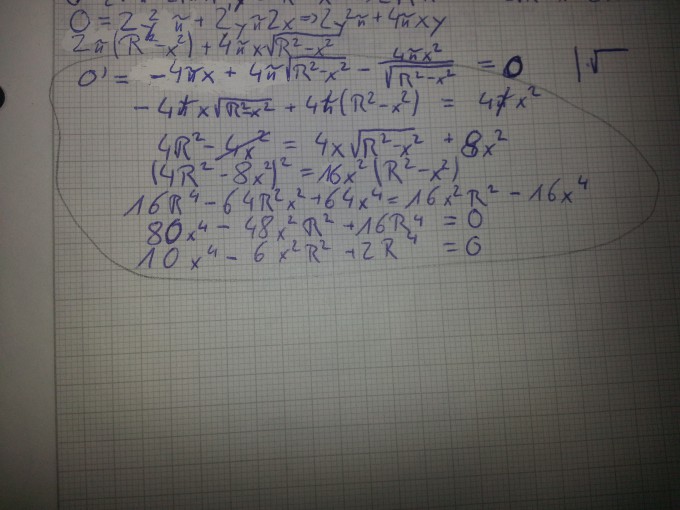 O = 2y²π + 2yπ2x ⇒ 2y²π + 4πxy
2π(R²-x²) + 4πx√R²-x²
O' = -4πx + 4π√R²-x² - 4πx²/√R²-x² = 0 | ·√
-4πx√R²-x² + 4π(R²-x²) = 4πx²
4R² - 4x² = 4x√R²-x² + 8x²
(4R² - 8x²)² = 16x²(R²-x²)
16R⁴ - 64R²x² + 64x⁴ = 16x²R² - 16x⁴
80x⁴ - 48x²R² + 16R⁴ = 0
10x⁴ - 6x²R² + 2R⁴ = 0